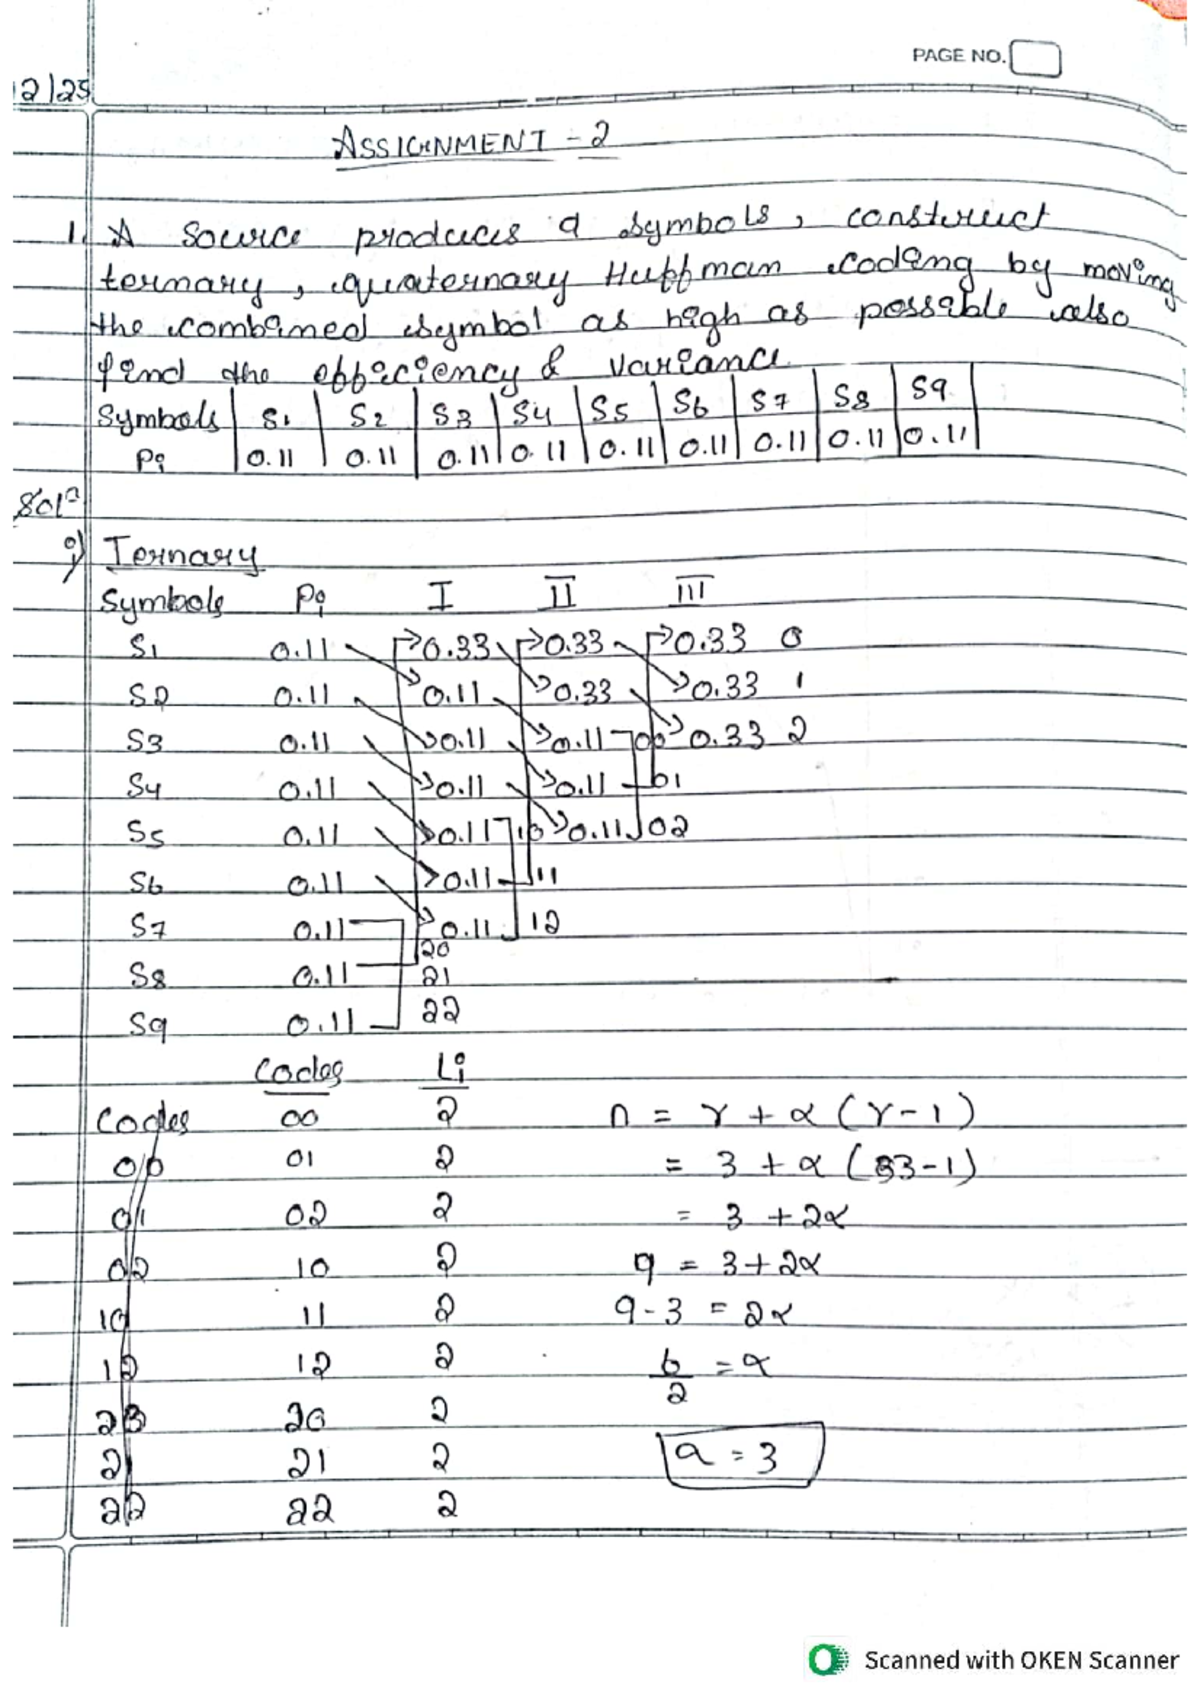 PAGE NO.
12/25
ASSIGNMENT - 2
1. A source produces 9 symbols, construct
ternary, quaternary Huffman coding by moving
the combined symbol as high as possible also
find the efficiency & variance.
Symbols | S1 | S2 | S3 | S4 | S5 | S6 | S7 | S8 | S9
Pi | 0.11 | 0.11 | 0.11 | 0.11 | 0.11 | 0.11 | 0.11 | 0.11 | 0.11
Solⁿ
i) Ternary
Symbols Pi I II III
S1 0.11 0.33 0.33 0.33 0
S2 0.11 0.11 0.33 0.33 1
S3 0.11 0.11 0.11 00 0.33 2
S4 0.11 0.11 0.11 01
S5 0.11 0.11 10 0.11 02
S6 0.11 0.11 11
S7 0.11 0.11 12
20
S8 0.11 21
S9 0.11 22
Codes Li
Codes 00 2 n = γ + α (γ - 1)
00 01 2 = 3 + α (3 - 1)
01 02 2 = 3 + 2α
02 10 2 9 = 3 + 2α
10 11 2 9 - 3 = 2α
12 12 2 6/2 = α
20 2
21 21 2 α = 3
22 22 2
Scanned with OKEN Scanner